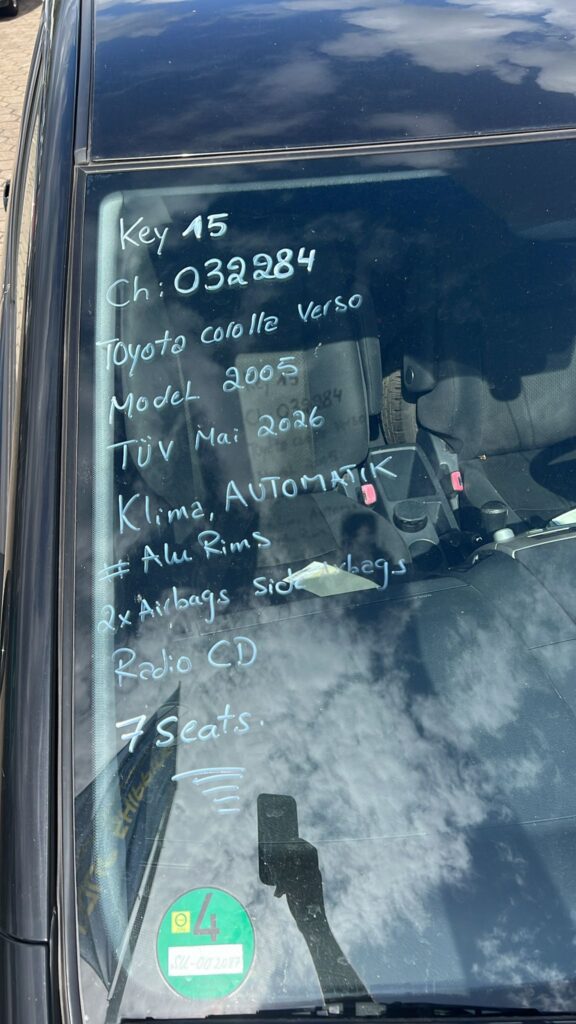 Key 15
Ch: 032284
Toyota corolla Verso
Model 2005
TÜV Mai 2026
Klima, AUTOMATIK
# Alu Rims
2x Airbags Side Airbags
Radio CD
7 Seats.
4
SU-002087